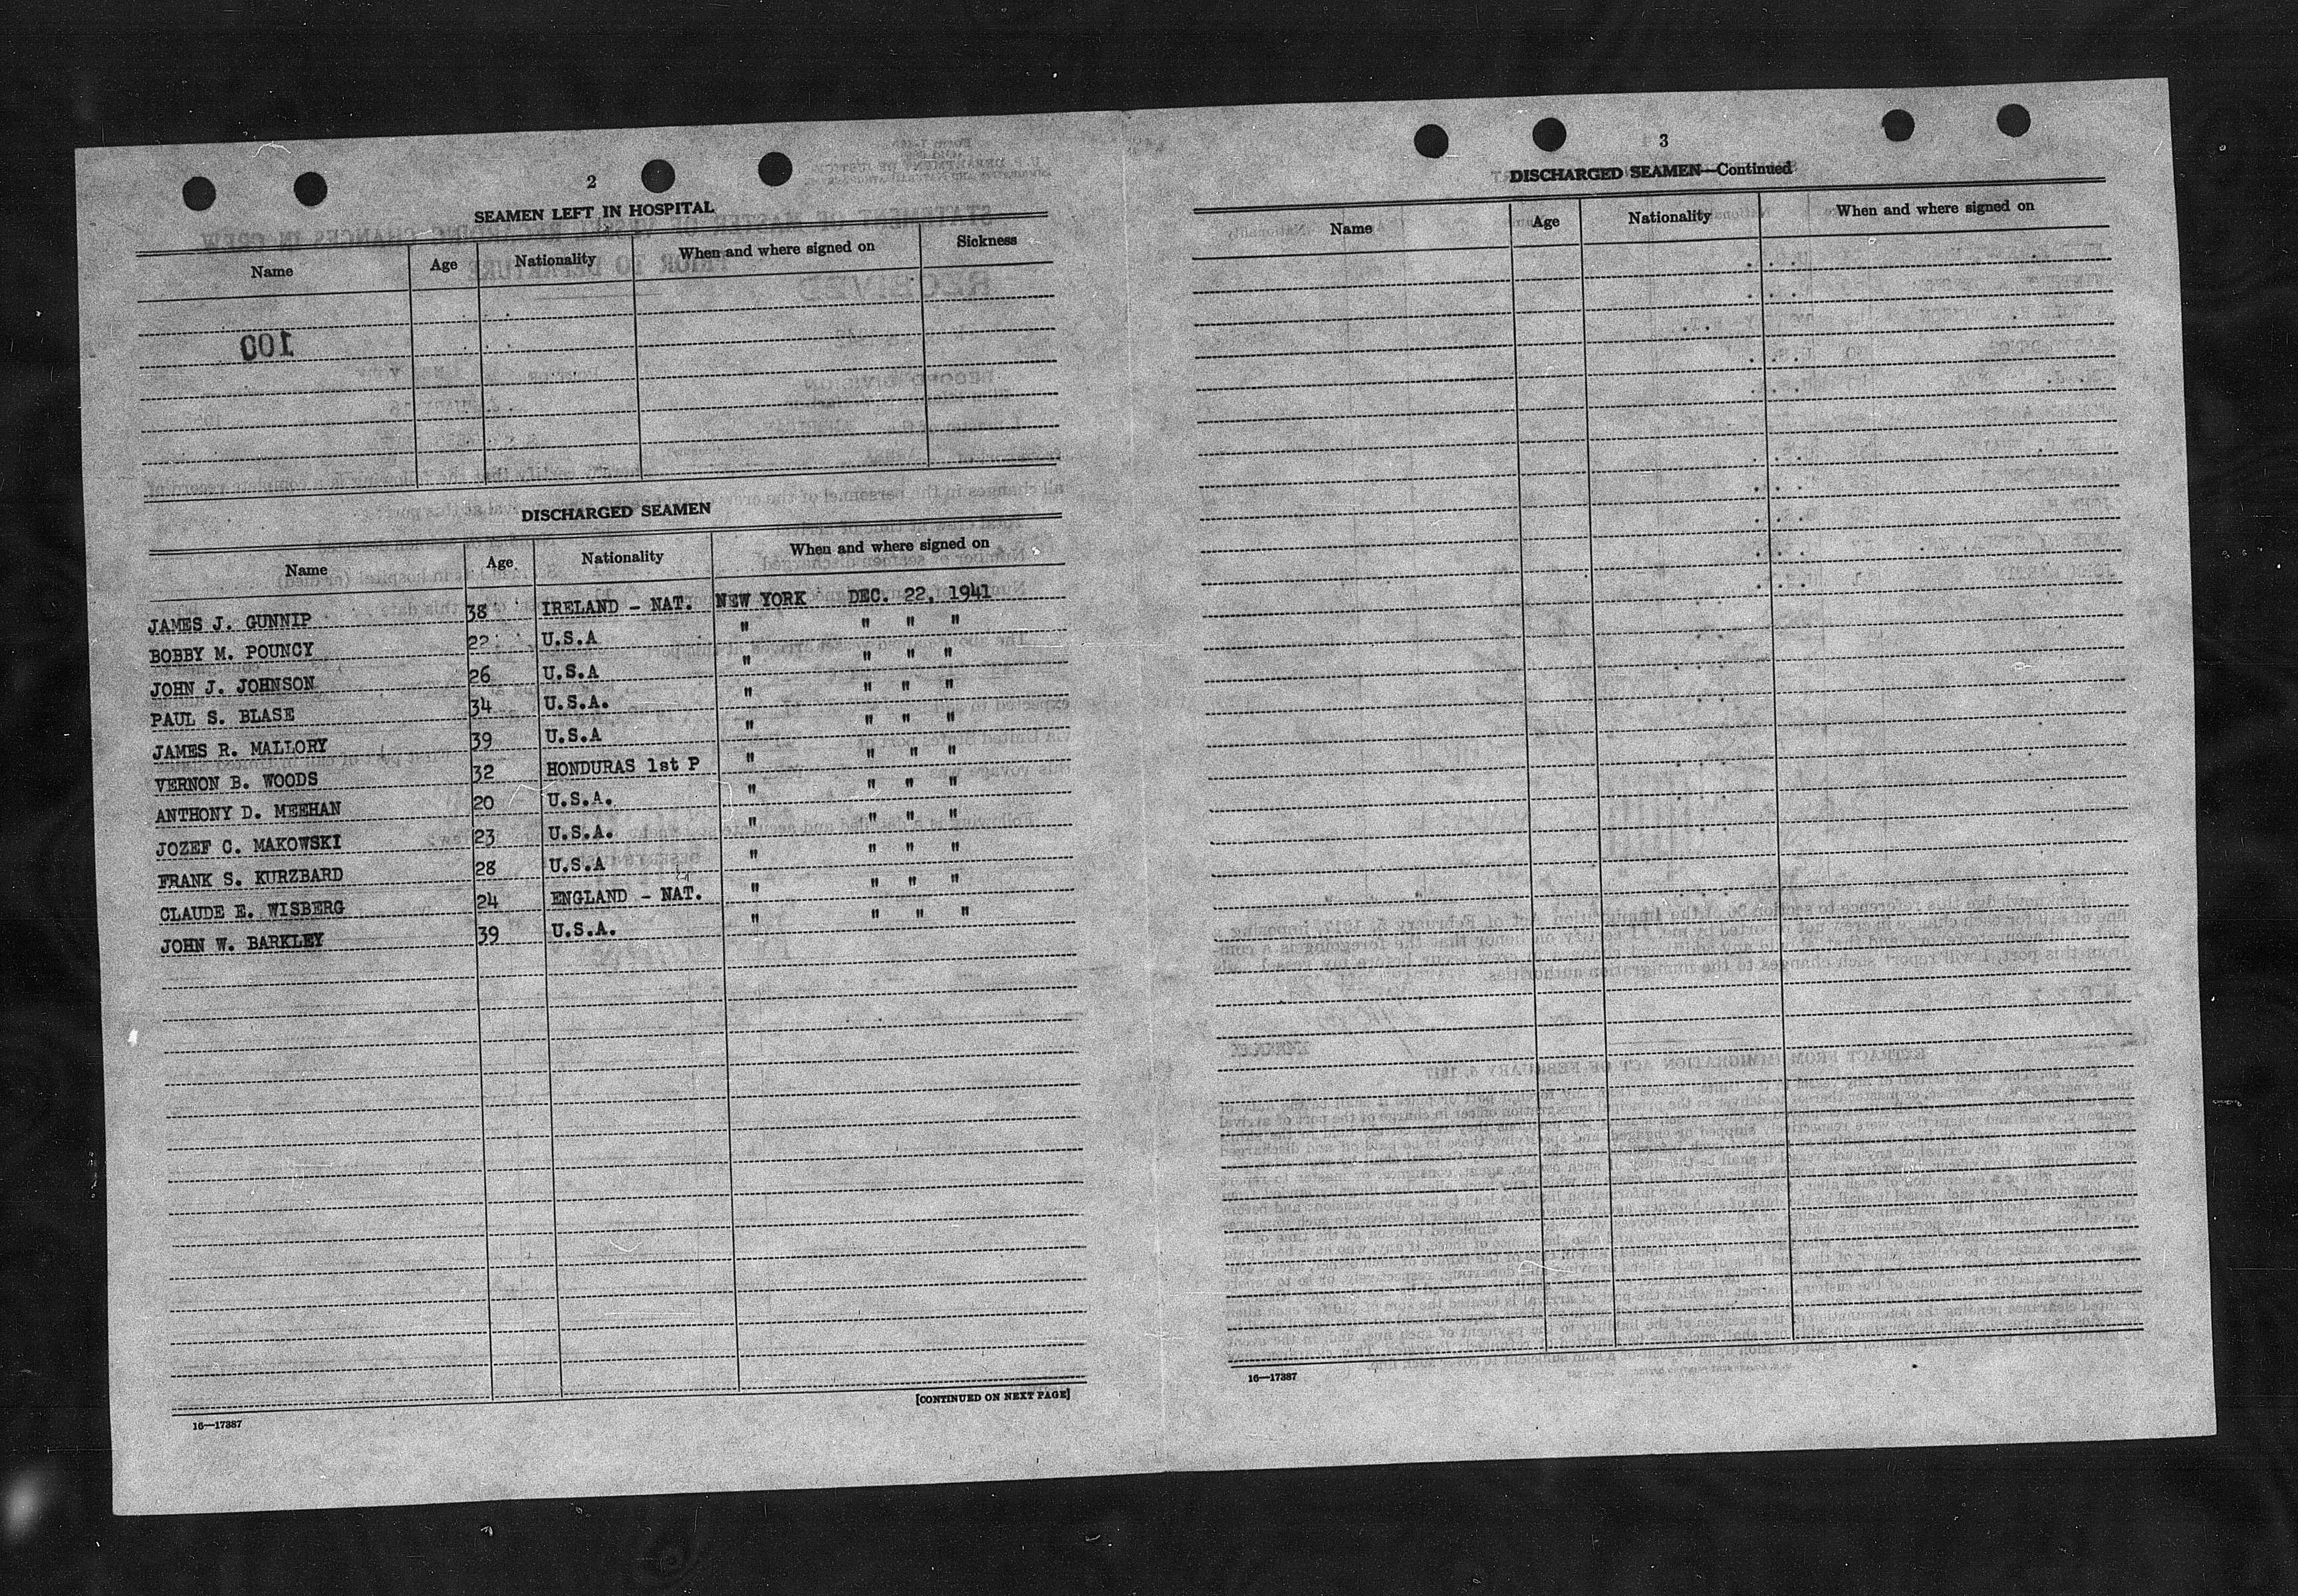 2
SEAMEN LEFT IN HOSPITAL
Name Age Nationality When and where signed on Sickness
100
DISCHARGED SEAMEN
Name Age Nationality When and where signed on
JAMES J. GUNNIP 38 IRELAND - NAT. NEW YORK DEC. 22, 1941
BOBBY M. POUNCY 22 U.S.A " " " "
JOHN J. JOHNSON 26 U.S.A " " " "
PAUL S. BLASE 34 U.S.A. " " " "
JAMES R. MALLORY 39 U.S.A " " " "
VERNON B. WOODS 32 HONDURAS 1st P " " " "
ANTHONY D. MEEHAN 20 U.S.A. " " " "
JOZEF C. MAKOWSKI 23 U.S.A. " " " "
FRANK S. KURZBARD 28 U.S.A " " " "
CLAUDE E. WISBERG 24 ENGLAND - NAT. " " " "
JOHN W. BARKLEY 39 U.S.A. " " " "
[CONTINUED ON NEXT PAGE]
16—17387
3
DISCHARGED SEAMEN—Continued
Name Age Nationality When and where signed on
16—17387